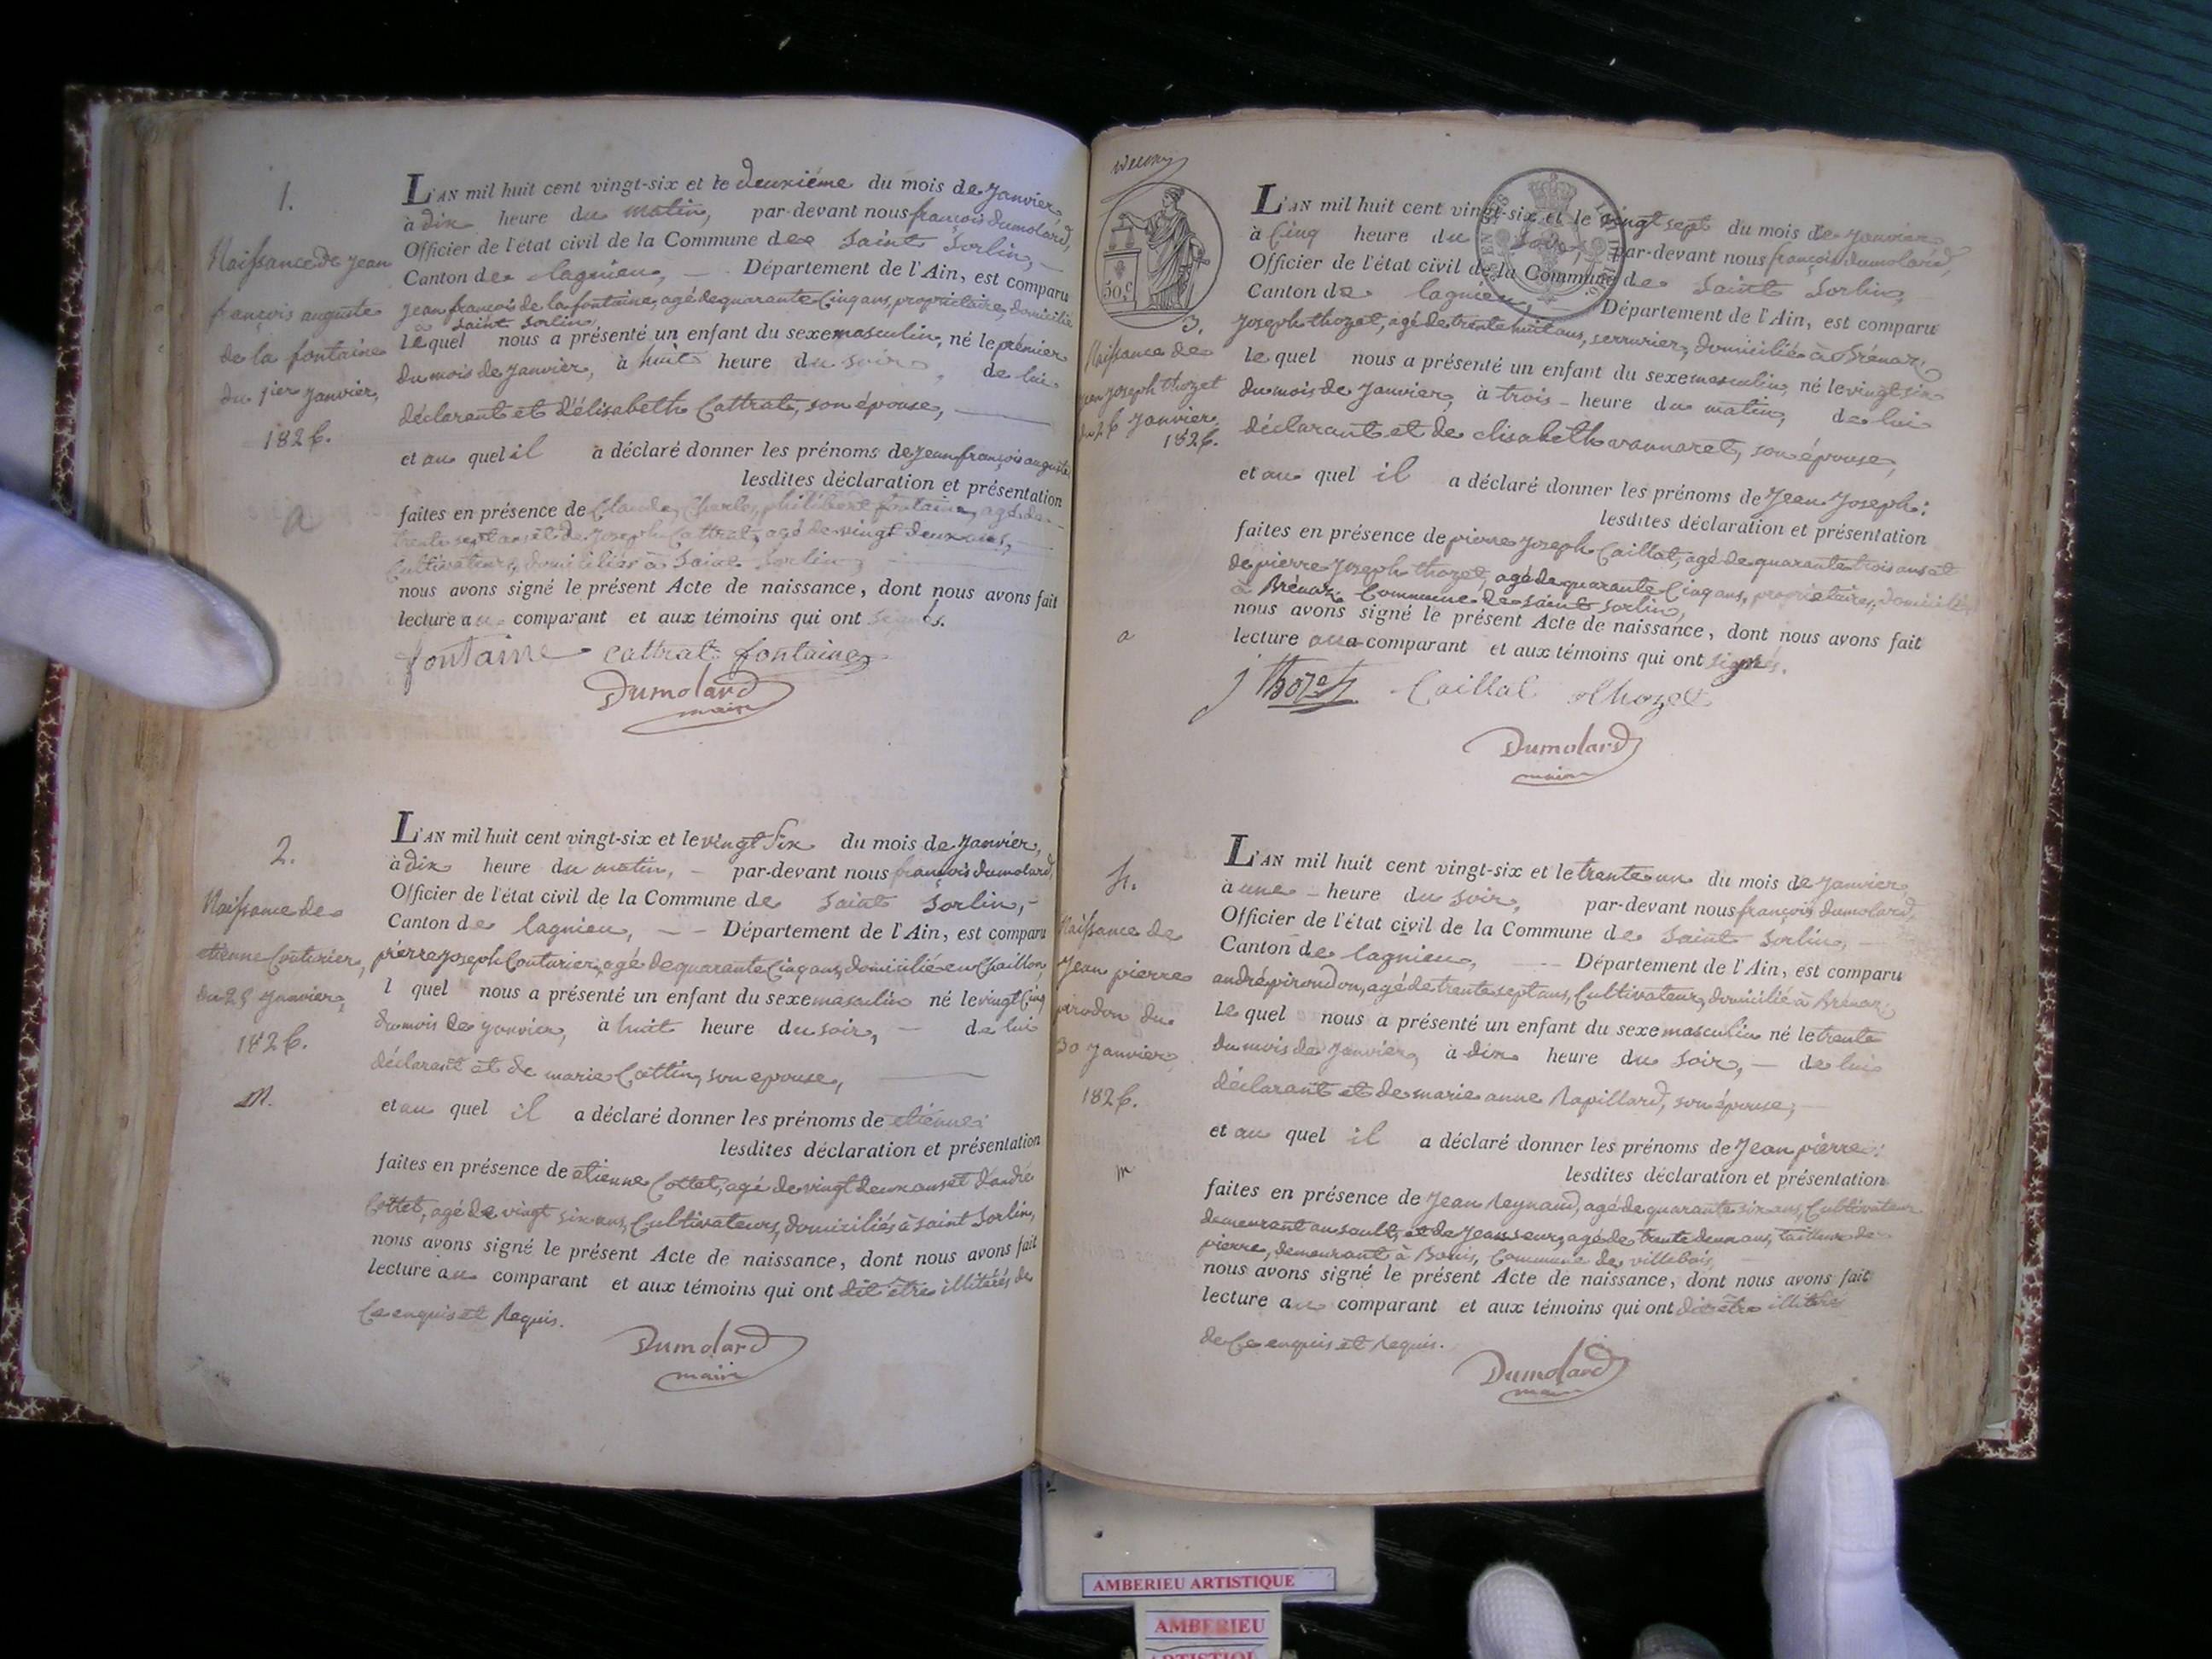 1.
Naissance de Jean
françois auguste
de la fontaine
du 1er Janvier,
1826.
a
L'AN mil huit cent vingt-six et le deuxième du mois de Janvier,
à dix heure du matin, par-devant nous françois dumolard,
Officier de l'état civil de la Commune de Saint Sorlin,
Canton de lagnieu, — Département de l'Ain, est comparu
Jean françois de la fontaine, agé de quarante Cinq ans, propriétaire, domicilié
à Saint Sorlin,
lequel nous a présenté un enfant du sexe masculin, né le premier
du mois de Janvier, à huit heure du soir, de lui
déclarant et d'élisabeth Cattrat, son épouse, —
et au quel il a déclaré donner les prénoms de Jean françois auguste,
lesdites déclaration et présentation
faites en présence de Claude, Charles, philibert fontaine, agé de
trente sept ans et de Joseph Cattrat, agé de vingt deux ans,
Cultivateurs, domiciliés à Saint Sorlin,
nous avons signé le présent Acte de naissance, dont nous avons fait
lecture au comparant et aux témoins qui ont signés.
fontaine Cattrat fontaine
Dumolard
maire
2.
Naissance de
etienne Couturier,
du 25 Janvier,
1826.
M.
L'AN mil huit cent vingt-six et le vingt Six du mois de Janvier,
à dix heure du matin, — par-devant nous françois dumolard,
Officier de l'état civil de la Commune de Saint Sorlin,
Canton de lagnieu, — — Département de l'Ain, est comparu
pierre Joseph Couturier, agé de quarante Cinq ans, domicilié en Chaillon,
l quel nous a présenté un enfant du sexe masculin né le vingt Cinq
du mois de Janvier, à huit heure du soir, — de lui
déclarant et de marie Cottin, son epouse, —
et au quel il a déclaré donner les prénoms de etienne:
lesdites déclaration et présentation
faites en présence de etienne Cottet, agé de vingt deux ans et d'andré
Cottet, agé de vingt six ans, Cultivateurs, domiciliés à Saint Sorlin,
nous avons signé le présent Acte de naissance, dont nous avons fait
lecture au comparant et aux témoins qui ont dit être illitérés de
Ce enquis et Requis.
Dumolard
maire
50.c
3.
Naissance de
Jean Joseph thozet
du 26 Janvier,
1826.
a
L'AN mil huit cent vingt-six et le vingt sept du mois de Janvier,
à Cinq heure du soir, par-devant nous françois dumolard,
Officier de l'état civil de la Commune de Saint Sorlin,
Canton de lagnieu, Département de l'Ain, est comparu
Joseph thozet, agé de trente huit ans, serrurier, domicilié à Brénaz,
le quel nous a présenté un enfant du sexe masculin, né le vingt six
du mois de Janvier, à trois - heure du matin, de lui
déclarant et de elisabeth vannaret, son épouse,
et au quel il a déclaré donner les prénoms de Jean Joseph:
lesdites déclaration et présentation
faites en présence de pierre Joseph Caillat, agé de quarante trois ans et
de pierre Joseph thozet, agé de quarante Cinq ans, propriétaires, domiciliés
à Brénaz Commune de saint Sorlin,
nous avons signé le présent Acte de naissance, dont nous avons fait
lecture au comparant et aux témoins qui ont signés.
j thozet Caillat thozet
Dumolard
maire
4.
Naissance de
Jean pierre
pirodon du
30 Janvier,
1826.
m
L'AN mil huit cent vingt-six et le trente un du mois de Janvier
à une - heure du soir, par-devant nous françois dumolard,
Officier de l'état civil de la Commune de Saint Sorlin, —
Canton de lagnieu, — Département de l'Ain, est comparu
andré pirondon, agé de trente sept ans, Cultivateur, domicilié à Brénaz,
le quel nous a présenté un enfant du sexe masculin né le trente
du mois de Janvier, à dix heure du soir, — de lui
déclarant et de marie anne Rapillard, son épouse, —
et au quel il a déclaré donner les prénoms de Jean pierre:
lesdites déclaration et présentation
faites en présence de Jean Reynaud, agé de quarante six ans, Cultivateur
demeurant au sault, et de Jean seur, agé de trente deux ans, tailleur de
pierre, demeurant à Bouis, Commune de villebois,
nous avons signé le présent Acte de naissance, dont nous avons fait
lecture au comparant et aux témoins qui ont dit être illitérés
de Ce enquis et Requis.
Dumolard
maire
AMBERIEU ARTISTIQUE
AMBERIEU
ARTISTIQUE